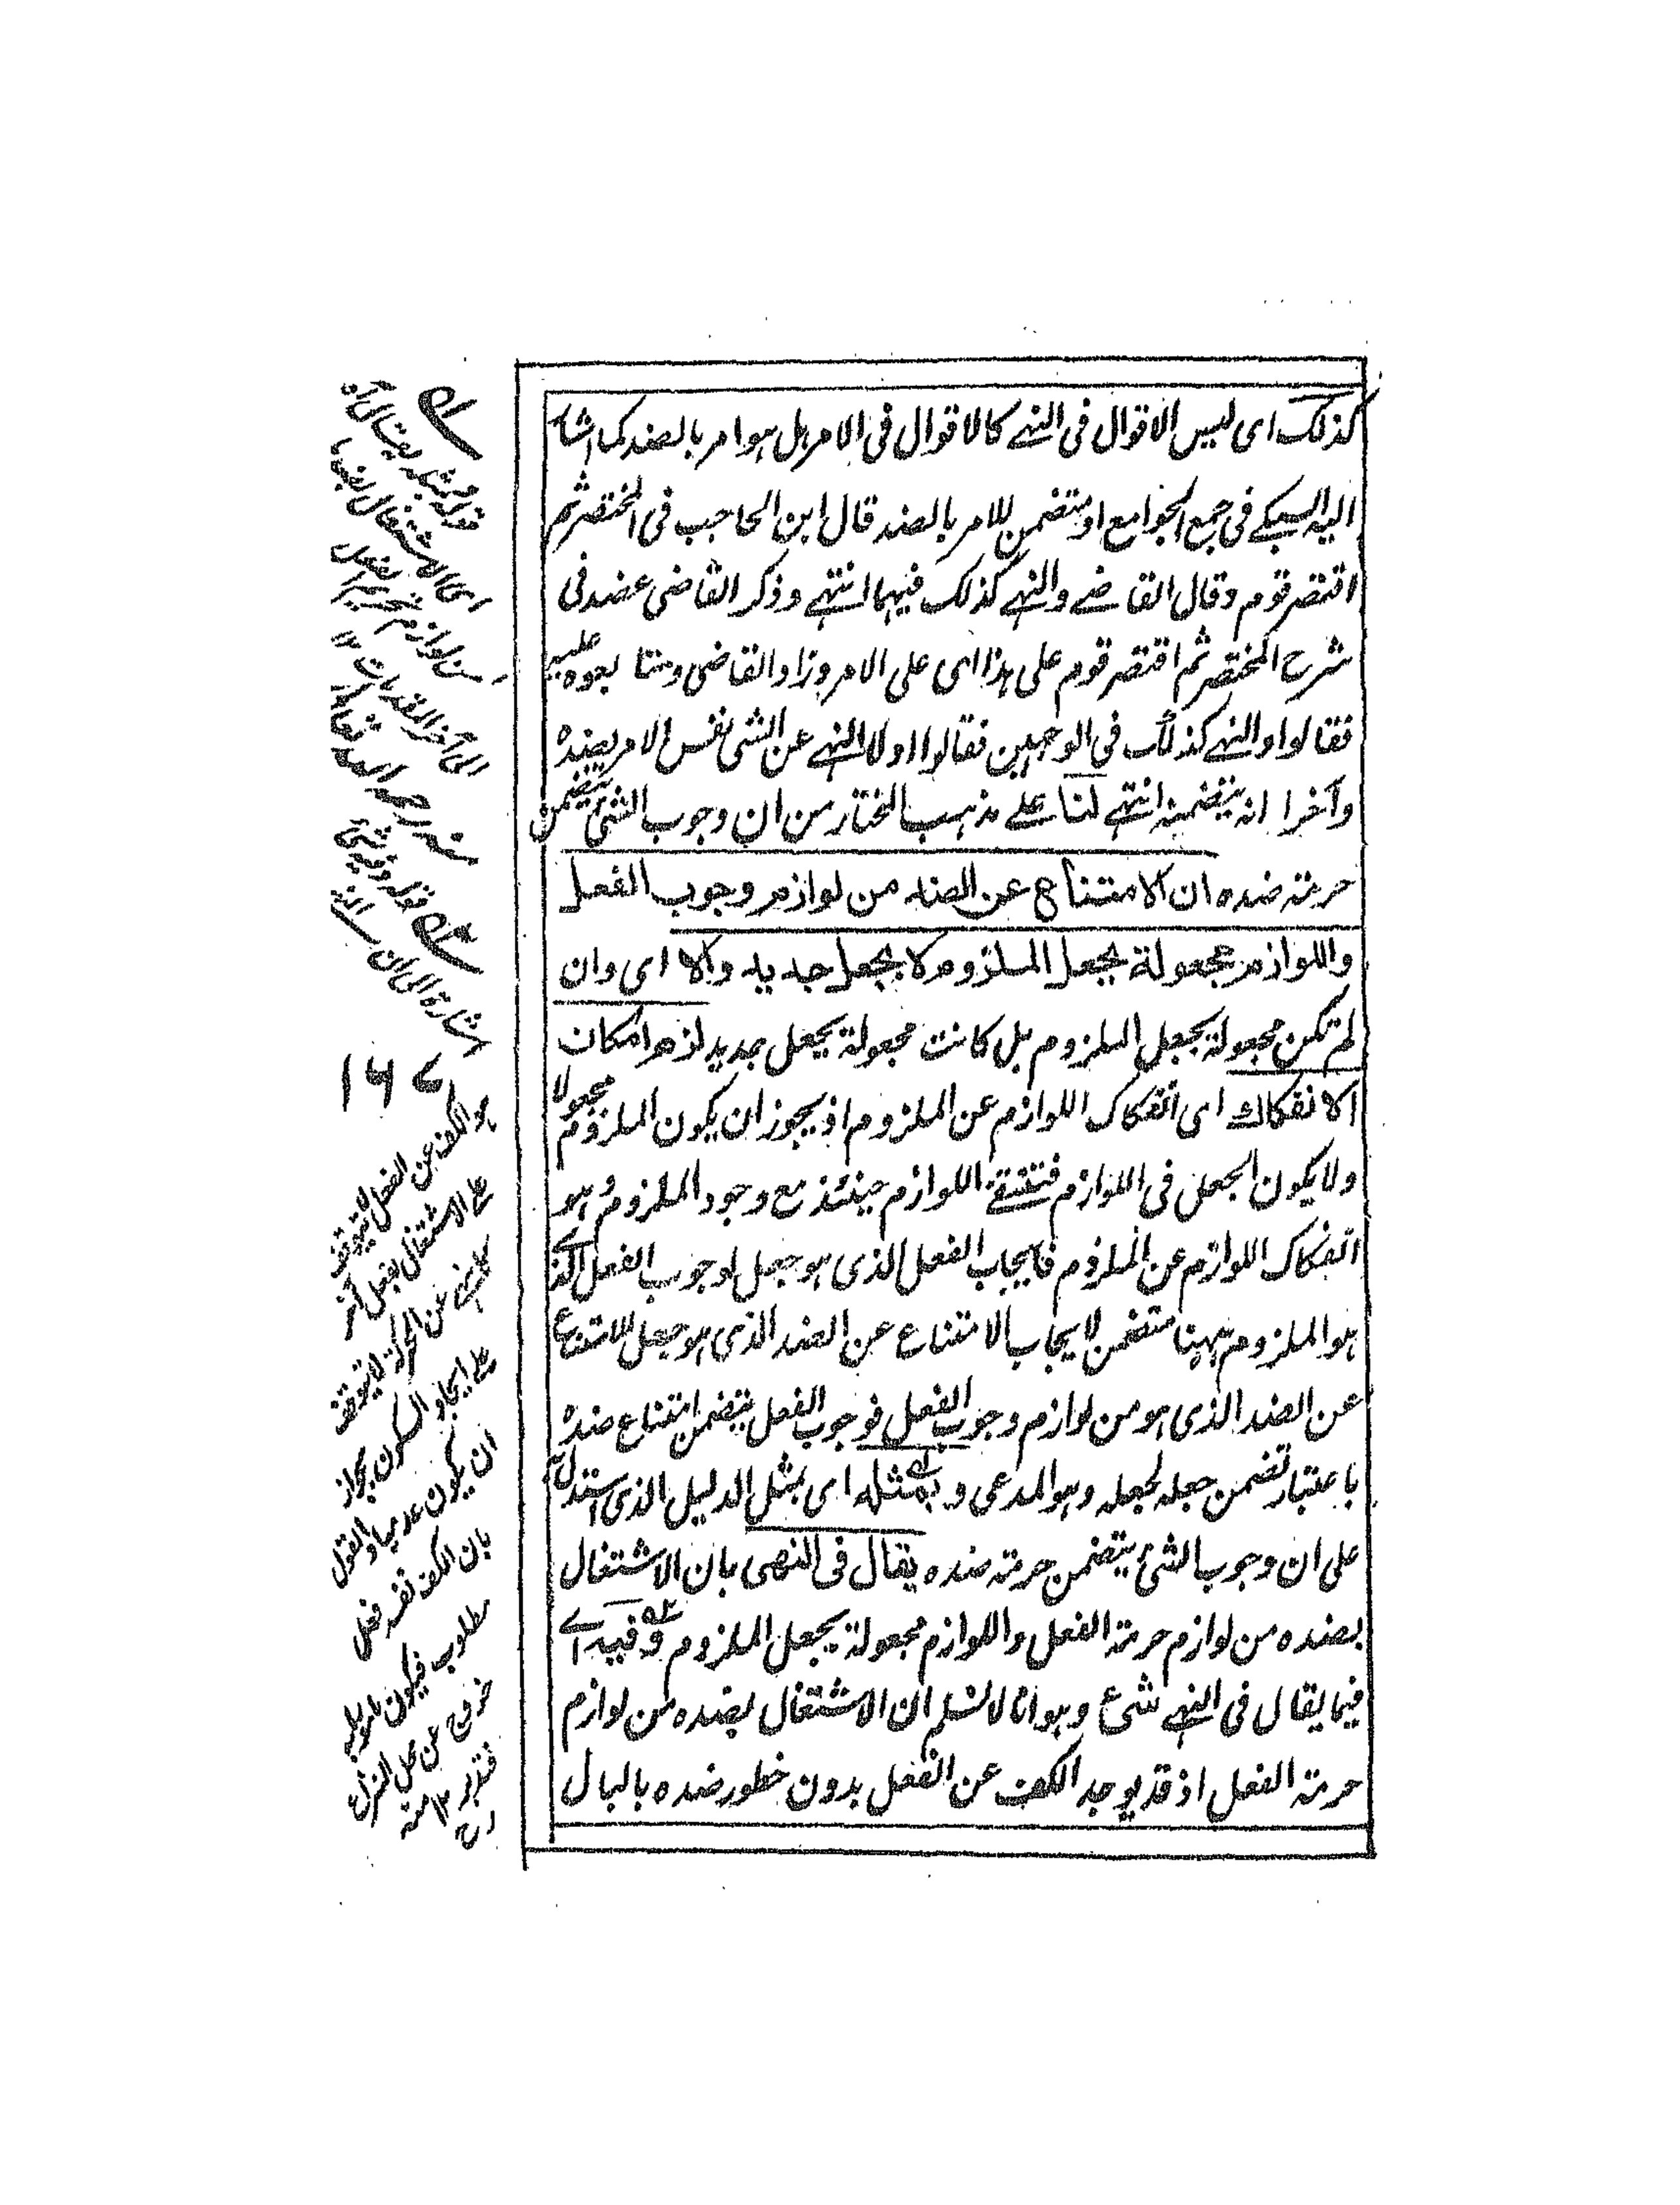 كذلك اى ليس الاقوال فى النهے كالاقوال فى الامر بل هو امر بالضد كما اشار
اليه السبكے فى جمع الجوامع او متضمن للامر بالضد قال ابن الحاجب فى المختصر ثم
اقتصر قوم وقال القاضے والنهے كذلك فيهما انتهے وذكر القاضى عضد فى
شرح المختصر ثم اقتصر قوم على هذا اى على الامر وزاد القاضى ومتابعوه عليه
فقالوا والنهے كذلك فى الوجهين فقالوا اولا النهے عن الشئ نفس الامر بضده
وآخرا انه يتضمنه انتهے لنا علے مذهب المختار من ان وجوب الشئ يتضمن
حرمة ضده ان الامتناع عن الضد من لوازم وجوب الفعل
واللوازم مجعولة بجعل الملزوم لا بجعل جديد والا اى وان
لم تكن مجعولة بجعل الملزوم بل كانت مجعولة بجعل جديد لزم امكان
الانفكاك اى انفكاك اللوازم عن الملزوم اذ يجوز ان يكون الملزوم مجعولا
ولا يكون الجعل فى اللوازم فتنتفے اللوازم حينئذ مع وجود الملزوم وهو
انفكاك اللوازم عن الملزوم فايجاب الفعل الذى هو جعل لوجوب الفعل الذے
هو الملزوم ههنا متضمن لايجاب الامتناع عن الضد الذى هو جعل للامتناع
عن الضد الذى هو من لوازم وجوب الفعل فوجوب الفعل يتضمن امتناع ضده
باعتبار تضمن جعله لجعله وهو المدعى و بمثله اى بمثل الدليل الذى استدل به
على ان وجوب الشئ يتضمن حرمة ضده يقال فى النهى بان الاشتغال
بضده من لوازم حرمة الفعل واللوازم مجعولة بجعل الملزوم وفيه اے
فيما يقال فى النهے شئ وهو انا لا نسلم ان الاشتغال بضده من لوازم
حرمة الفعل اذ قد يوجد الكف عن الفعل بدون خطور ضده بالبال
قوله وبمثله يقال اه
اى الاشتغال بضد
من لوازم تحريم الفعل
الى آخر المقدمات ١٢
قوله وفيه شئ
اشارة الى ان
هو الكف عن الفعل لا يتوقف
على الاشتغال بفعل آخر
عن الحركة لا يتوقف
على ايجاد السكون بجواز
ان يكون عدميا والقول
بان الكف نفسه فعل
مطلوب فيكون مامورا به
خروج عن محل النزاع
فتدبر ١٢ منه
رح